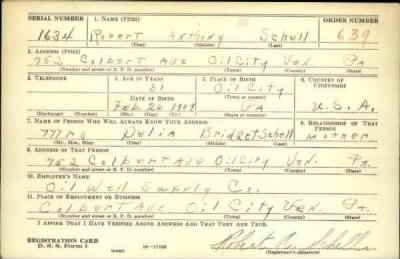 SERIAL NUMBER 1. NAME (Print) ORDER NUMBER
1634 Robert Anthony Schell 639
(First) (Middle) (Last)
2. ADDRESS (Print)
752 Colbert Ave Oil City Ven. Pa
(Number and street or R. F. D. number) (Town) (County) (State)
3. TELEPHONE 4. AGE IN YEARS 5. PLACE OF BIRTH 6. COUNTRY OF CITIZENSHIP
31 Oil City
DATE OF BIRTH (Town or county)
Feb. 26 1909 Pa U.S.A.
(Exchange) (Number) (Mo.) (Day) (Yr.) (State or country)
7. NAME OF PERSON WHO WILL ALWAYS KNOW YOUR ADDRESS 8. RELATIONSHIP OF THAT PERSON
Mrs Delia Bridget Schell Mother
(Mr., Mrs., Miss) (First) (Middle) (Last)
9. ADDRESS OF THAT PERSON
752 Colbert Ave Oil City Ven. Pa.
(Number and street or R. F. D. number) (Town) (County) (State)
10. EMPLOYER'S NAME
Oil Well Supply Co.
11. PLACE OF EMPLOYMENT OR BUSINESS
Colbert Ave Oil City Ven. Pa.
(Number and street or R. F. D. number) (Town) (County) (State)
I AFFIRM THAT I HAVE VERIFIED ABOVE ANSWERS AND THAT THEY ARE TRUE.
REGISTRATION CARD
D. S. S. Form 1 (over) Robert A. Schell
(Registrant's signature)